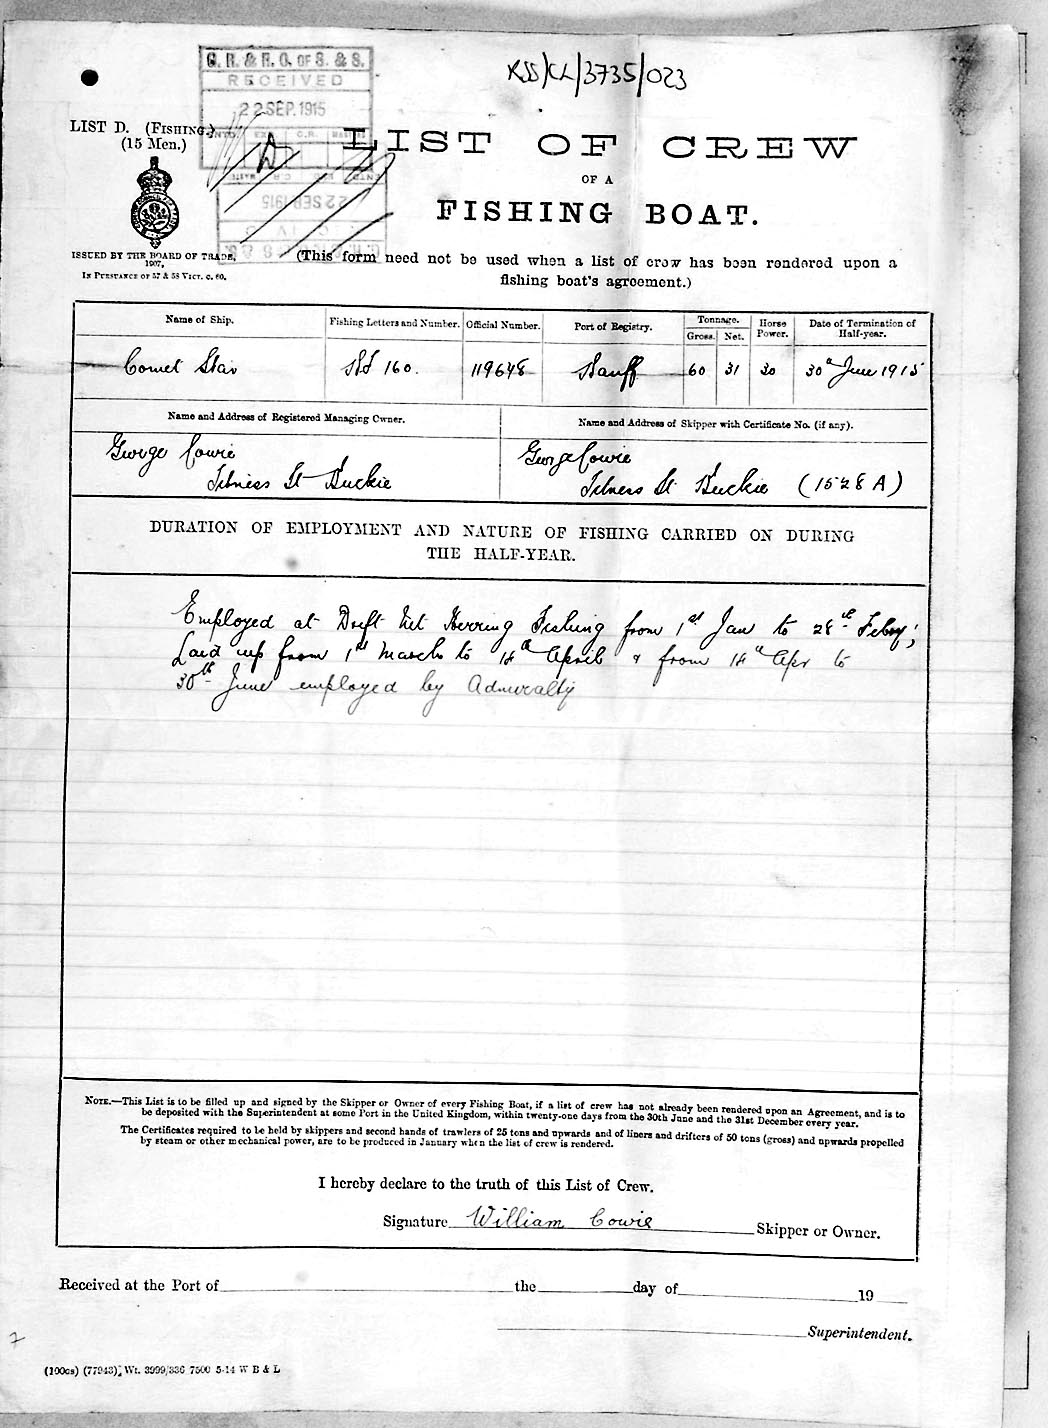 RSS/CL/3735/023
G. R. & R. O. OF S. & S.
RECEIVED
22 SEP. 1915
LIST D. (FISHING.)
(15 Men.)
LIST OF CREW
OF A
FISHING BOAT.
ISSUED BY THE BOARD OF TRADE,
1907,
IN PURSUANCE OF 57 & 58 VICT. C. 60.
(This form need not be used when a list of crew has been rendered upon a
fishing boat's agreement.)
Name of Ship. Fishing Letters and Number. Official Number. Port of Registry. Tonnage. Gross. Net. Horse Power. Date of Termination of Half-year.
Comet Star 160. 119648 Banff 60 31 30 30th June 1915
Name and Address of Registered Managing Owner. Name and Address of Skipper with Certificate No. (if any).
George Cowie George Cowie
St Buckie St Buckie (1528 A)
DURATION OF EMPLOYMENT AND NATURE OF FISHING CARRIED ON DURING
THE HALF-YEAR.
Employed at Drift Net Herring Fishing from 1st Jan to 28th Feby;
Laid up from 1st March to 14th April & from 14th Apr to
30th June employed by Admiralty
NOTE.—This List is to be filled up and signed by the Skipper or Owner of every Fishing Boat, if a list of crew has not already been rendered upon an Agreement, and is to
be deposited with the Superintendent at some Port in the United Kingdom, within twenty-one days from the 30th June and the 31st December every year.
The Certificates required to be held by skippers and second hands of trawlers of 25 tons and upwards and of liners and drifters of 50 tons (gross) and upwards propelled
by steam or other mechanical power, are to be produced in January when the list of crew is rendered.
I hereby declare to the truth of this List of Crew.
Signature William Cowie Skipper or Owner.
Received at the Port of the day of 19
Superintendent.
7
(100cs) (77943) Wt. 3999/336 7500 5-14 W B & L